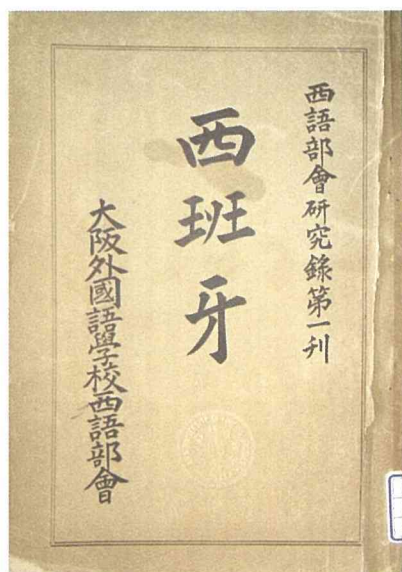 西語部會研究錄第一刊
西班牙
大阪外國語學校西語部會